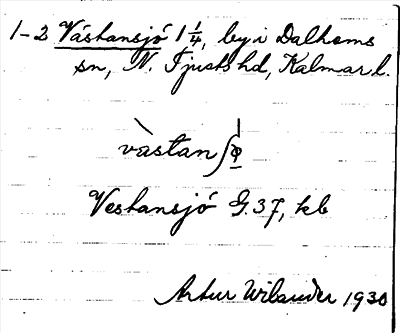 1-2 Västansjö 1 1/4, by i Dalhems
sn, N. Tjusts hd, Kalmar l.
västan
Vestansjö G.37, kb
Artur Wilander 1930